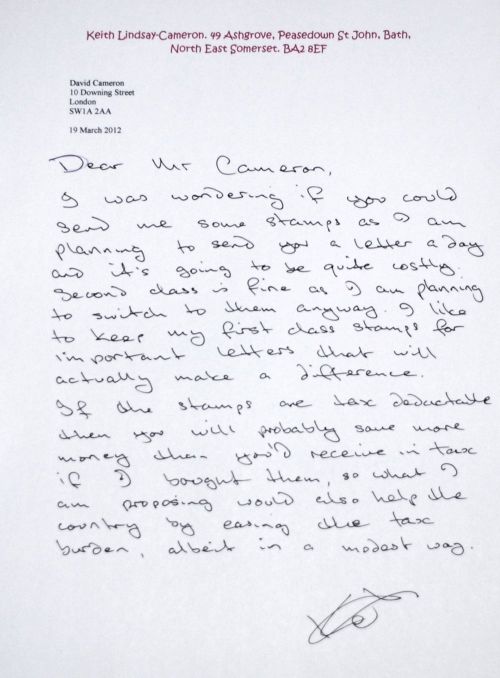 Keith Lindsay-Cameron. 49 Ashgrove, Peasedown St John, Bath,
North East Somerset. BA2 8EF
David Cameron
10 Downing Street
London
SW1A 2AA
19 March 2012
Dear Mr Cameron,
I was wondering if you could
send me some stamps as I am
planning to send you a letter a day
and it's going to be quite costly.
Second class is fine as I am planning
to switch to them anyway. I like
to keep my first class stamps for
important letters that will
actually make a difference.
If the stamps are tax deductable
then you will probably save more
money than you'd receive in tax
if I bought them, so what I
am proposing would also help the
country by easing the tax
burden, albeit in a modest way.